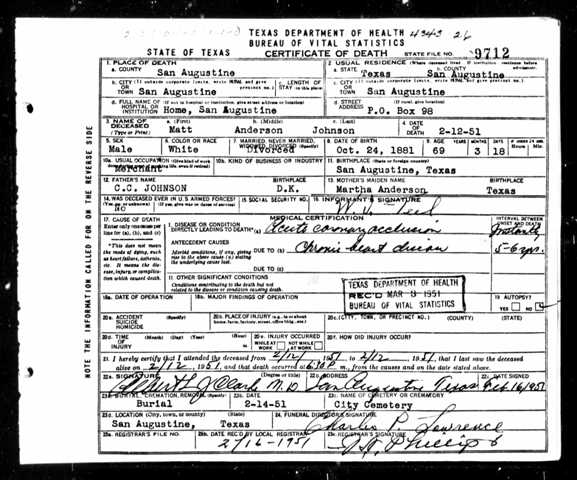 TEXAS DEPARTMENT OF HEALTH 4343 26
BUREAU OF VITAL STATISTICS
STATE OF TEXAS CERTIFICATE OF DEATH STATE FILE NO. 9712
1. PLACE OF DEATH
a. COUNTY San Augustine
2. USUAL RESIDENCE (Where deceased lived.
a. STATE Texas b. COUNTY San Augustine
b. CITY (If outside corporate limits, write RURAL and give precinct no.)
OR TOWN San Augustine
c. LENGTH OF STAY (in this place)
c. CITY (If outside corporate limits, write RURAL and give precinct no.)
OR TOWN San Augustine
d. FULL NAME OF HOSPITAL OR INSTITUTION (If not in hospital or institution, give street address or location)
Home, San Augustine
d. STREET ADDRESS (If rural, give location)
P.O. Box 98
3. NAME OF DECEASED (Type or Print)
a. (First) Matt b. (Middle) Anderson c. (Last) Johnson
4. DATE OF DEATH 2-12-51
5. SEX Male
6. COLOR OR RACE White
7. MARRIED, NEVER MARRIED, WIDOWED, DIVORCED (Specify) Divorced
8. DATE OF BIRTH Oct. 24, 1881
9. AGE 69 3 18
10a. USUAL OCCUPATION Merchant
10b. KIND OF BUSINESS OR INDUSTRY
11. BIRTHPLACE (State or foreign country)
San Augustine, Texas
12. FATHER'S NAME C.C. JOHNSON BIRTHPLACE D.K.
13. MOTHER'S MAIDEN NAME Martha Anderson BIRTHPLACE Texas
14. WAS DECEASED EVER IN U.S. ARMED FORCES?
15. SOCIAL SECURITY NO.
16. INFORMANT'S SIGNATURE
17. CAUSE OF DEATH
Enter only one cause per line for (a), (b), and (c)
*This does not mean the mode of dying, such as heart failure, asthenia, etc. It means the disease, injury, or complication which caused death.
MEDICAL CERTIFICATION
INTERVAL BETWEEN ONSET AND DEATH
I. DISEASE OR CONDITION DIRECTLY LEADING TO DEATH* (a) Acute coronary occlusion
ANTECEDENT CAUSES
Morbid conditions, if any, giving rise to the above cause (a) stating the underlying cause last.
DUE TO (b) Chronic heart disease 5-6 yrs.
DUE TO (c)
II. OTHER SIGNIFICANT CONDITIONS
Conditions contributing to the death but not related to the disease or condition causing death.
TEXAS DEPARTMENT OF HEALTH
REC'D MAR 8 1951
BUREAU OF VITAL STATISTICS
18a. DATE OF OPERATION
18b. MAJOR FINDINGS OF OPERATION
19. AUTOPSY?
YES NO
20a. ACCIDENT SUICIDE HOMICIDE (Specify)
20b. PLACE OF INJURY (e.g., in or about home, farm, factory, street, office bldg., etc.)
20c. (CITY, TOWN, OR PRECINCT NO.) (COUNTY) (STATE)
20d. TIME OF INJURY (Month) (Day) (Year) (Hour)
20e. INJURY OCCURRED
WHILE AT WORK NOT WHILE AT WORK
20f. HOW DID INJURY OCCUR?
21. I hereby certify that I attended the deceased from 2/12 1951 to 2/12 1951, that I last saw the deceased
alive on 2/12, 1951, and that death occurred at m., from the causes and on the date stated above.
22a. SIGNATURE (Degree or title) M.D.
22b. ADDRESS San Augustine Texas
22c. DATE SIGNED Feb 16, 1951
23a. BURIAL, CREMATION, REMOVAL (Specify) Burial
23b. DATE 2-14-51
23c. NAME OF CEMETERY OR CREMATORY
City Cemetery
23d. LOCATION (City, town, or county) (State)
San Augustine, Texas
24. FUNERAL DIRECTOR'S SIGNATURE
Charles P. Lawrence
25a. REGISTRAR'S FILE NO.
25b. DATE REC'D BY LOCAL REGISTRAR 2/16-1951
25c. REGISTRAR'S SIGNATURE
NOTE THE INFORMATION CALLED FOR ON THE REVERSE SIDE